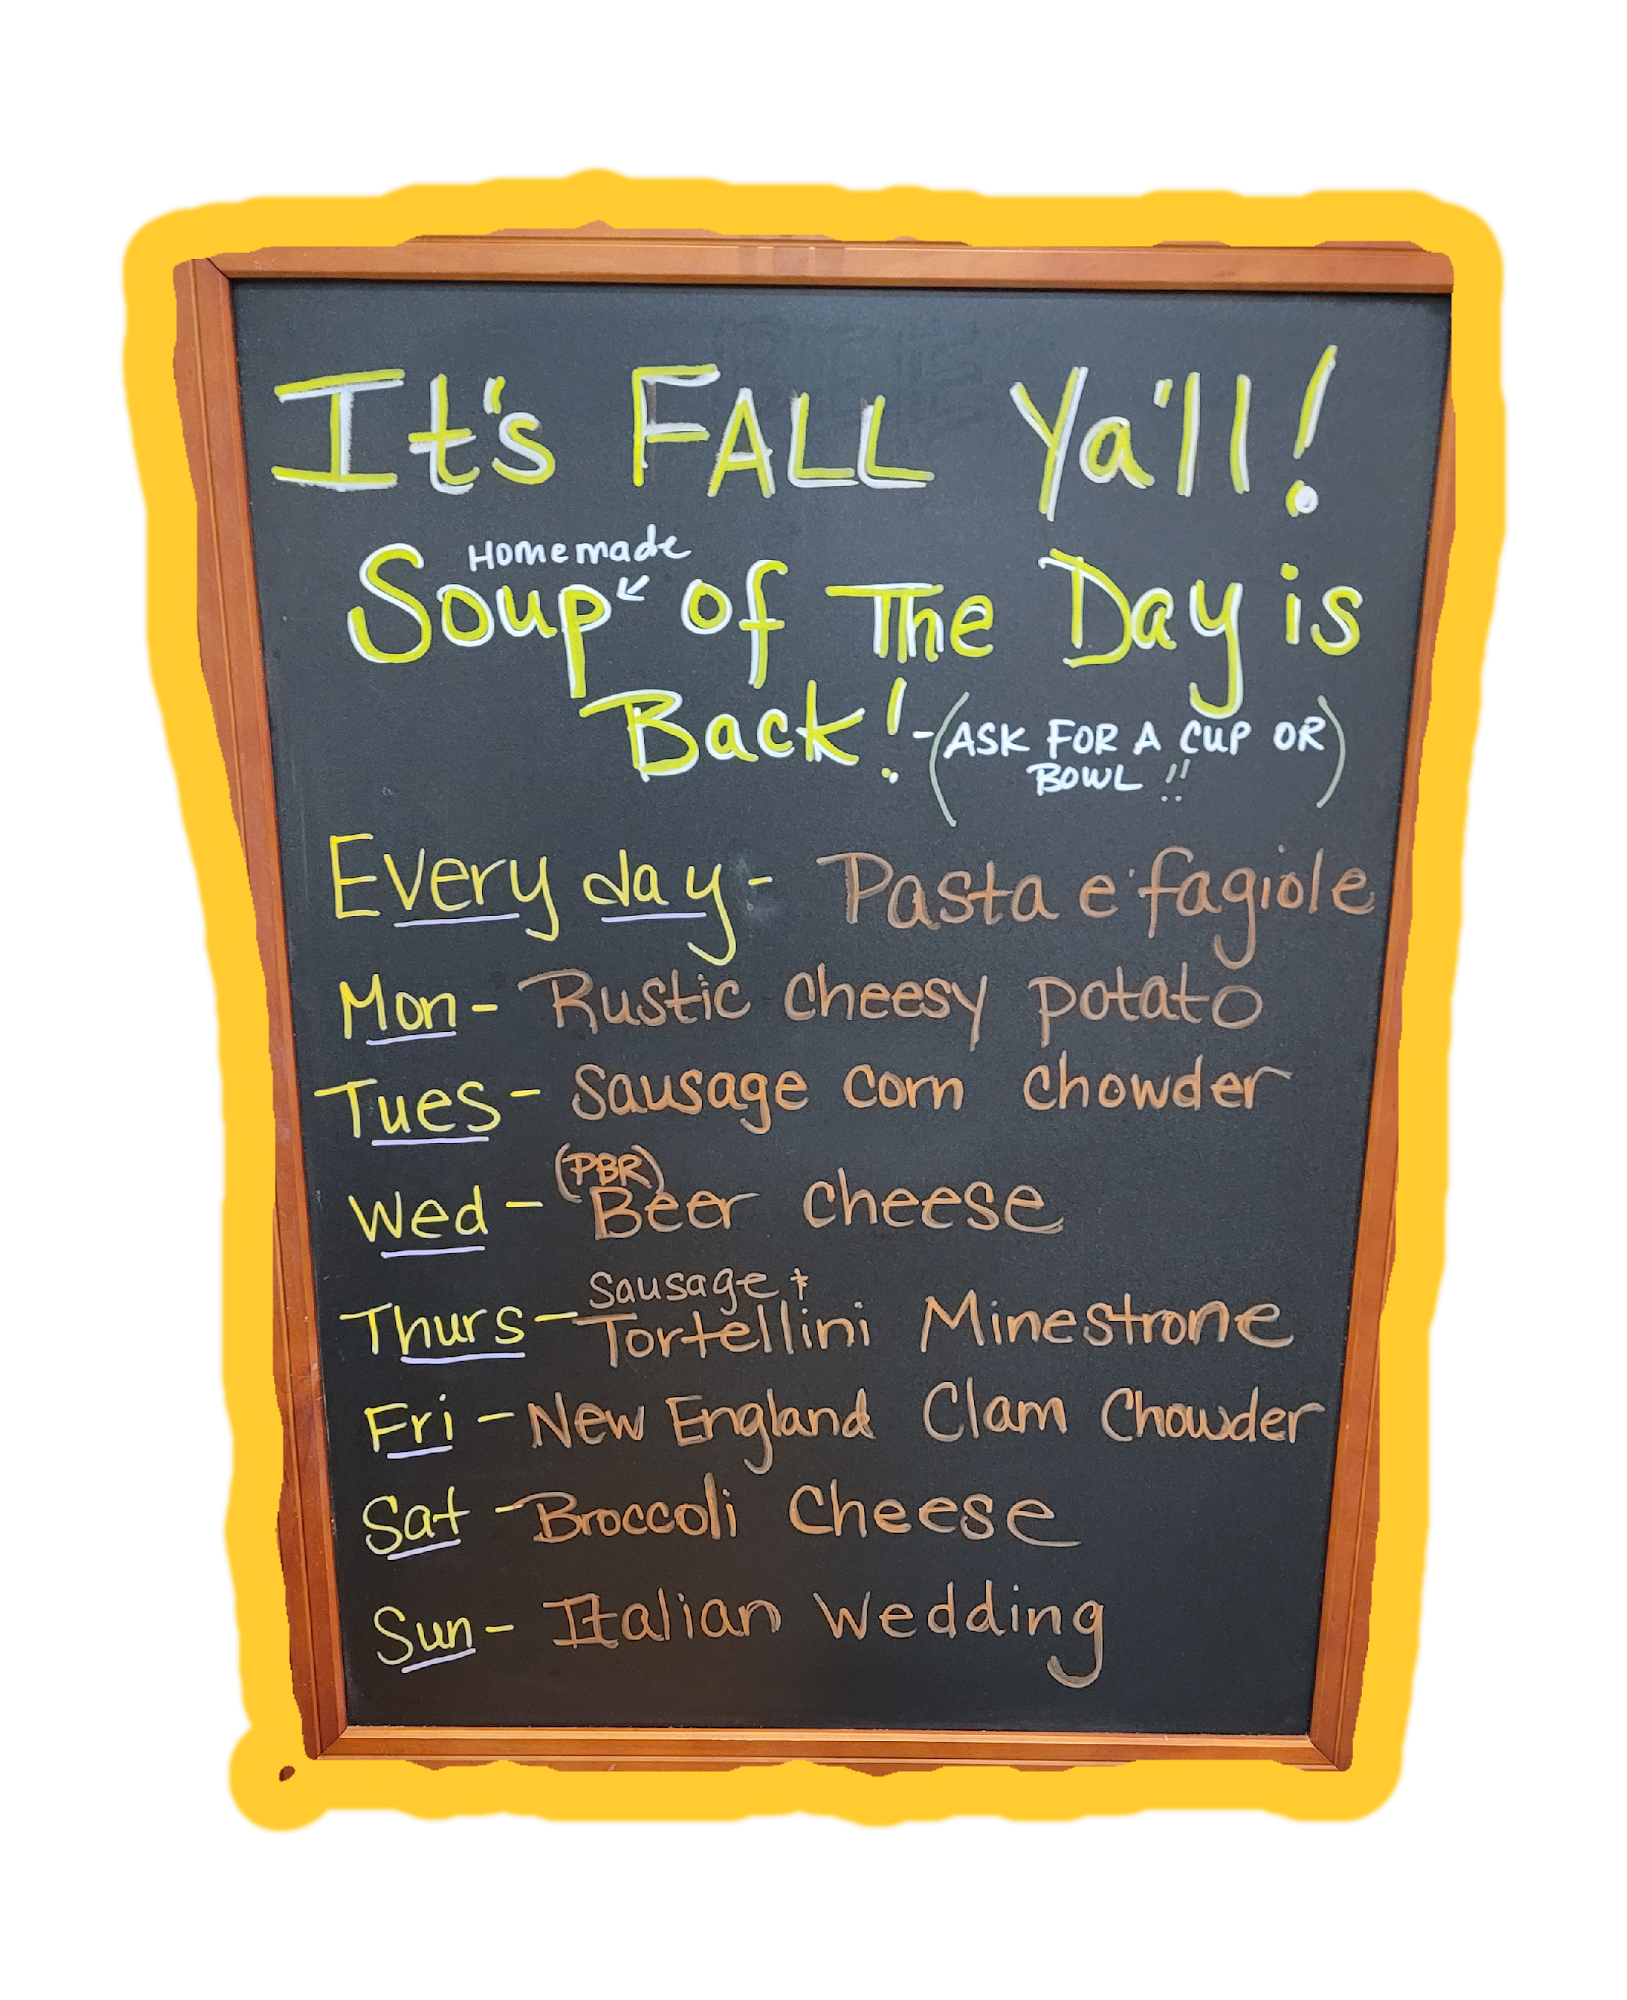 It's FALL Ya'll!
Homemade
Soup of The Day is
Back! - (ASK FOR A CUP OR
BOWL !!)
Every day - Pasta e' fagiole
Mon - Rustic Cheesy potato
Tues - Sausage corn chowder
(PBR)
Wed - Beer cheese
Sausage +
Thurs - Tortellini Minestrone
Fri - New England Clam Chowder
Sat - Broccoli Cheese
Sun - Italian Wedding